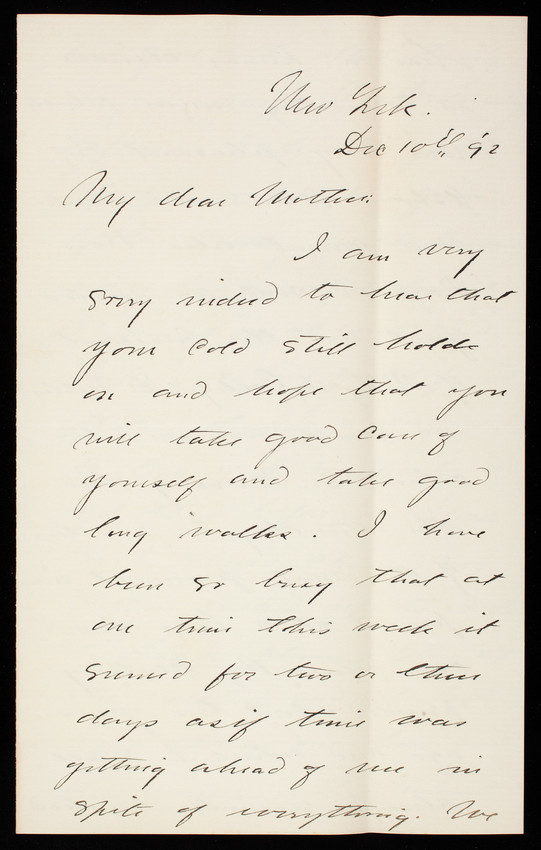 New York.
Dec 10th '92
My dear Mother:
I am very
sorry indeed to hear that
your cold still holds
on and hope that you
will take good care of
yourself and take good
long walks. I have
been so busy that at
one time this week it
seemed for two or three
days as if time was
getting ahead of me in
spite of everything. We